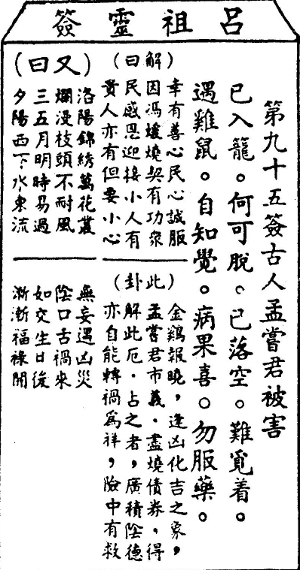 呂祖靈簽
第九十五簽古人孟嘗君被害
已入籠。何可脫。已落空。難覓着。
遇雞鼠。自知覺。病果喜。勿服藥。
(解曰)
幸有善心民心誠服
因馮煖燒契有功衆
民感恩迎接小人有
貴人亦有但要小心
(此卦)
金鷄報曉,逢凶化吉之象,
孟嘗君市義.盡燒債券,得
解此厄.占之者,廣積陰德
亦自能轉禍爲祥,險中有救
(又曰)
洛陽錦綉萬花叢
爛漫枝頭不耐風
三五月明時易過
夕陽西下水東流
無妄遇凶災
陰口古禍來
如交生日後
漸漸福祿開